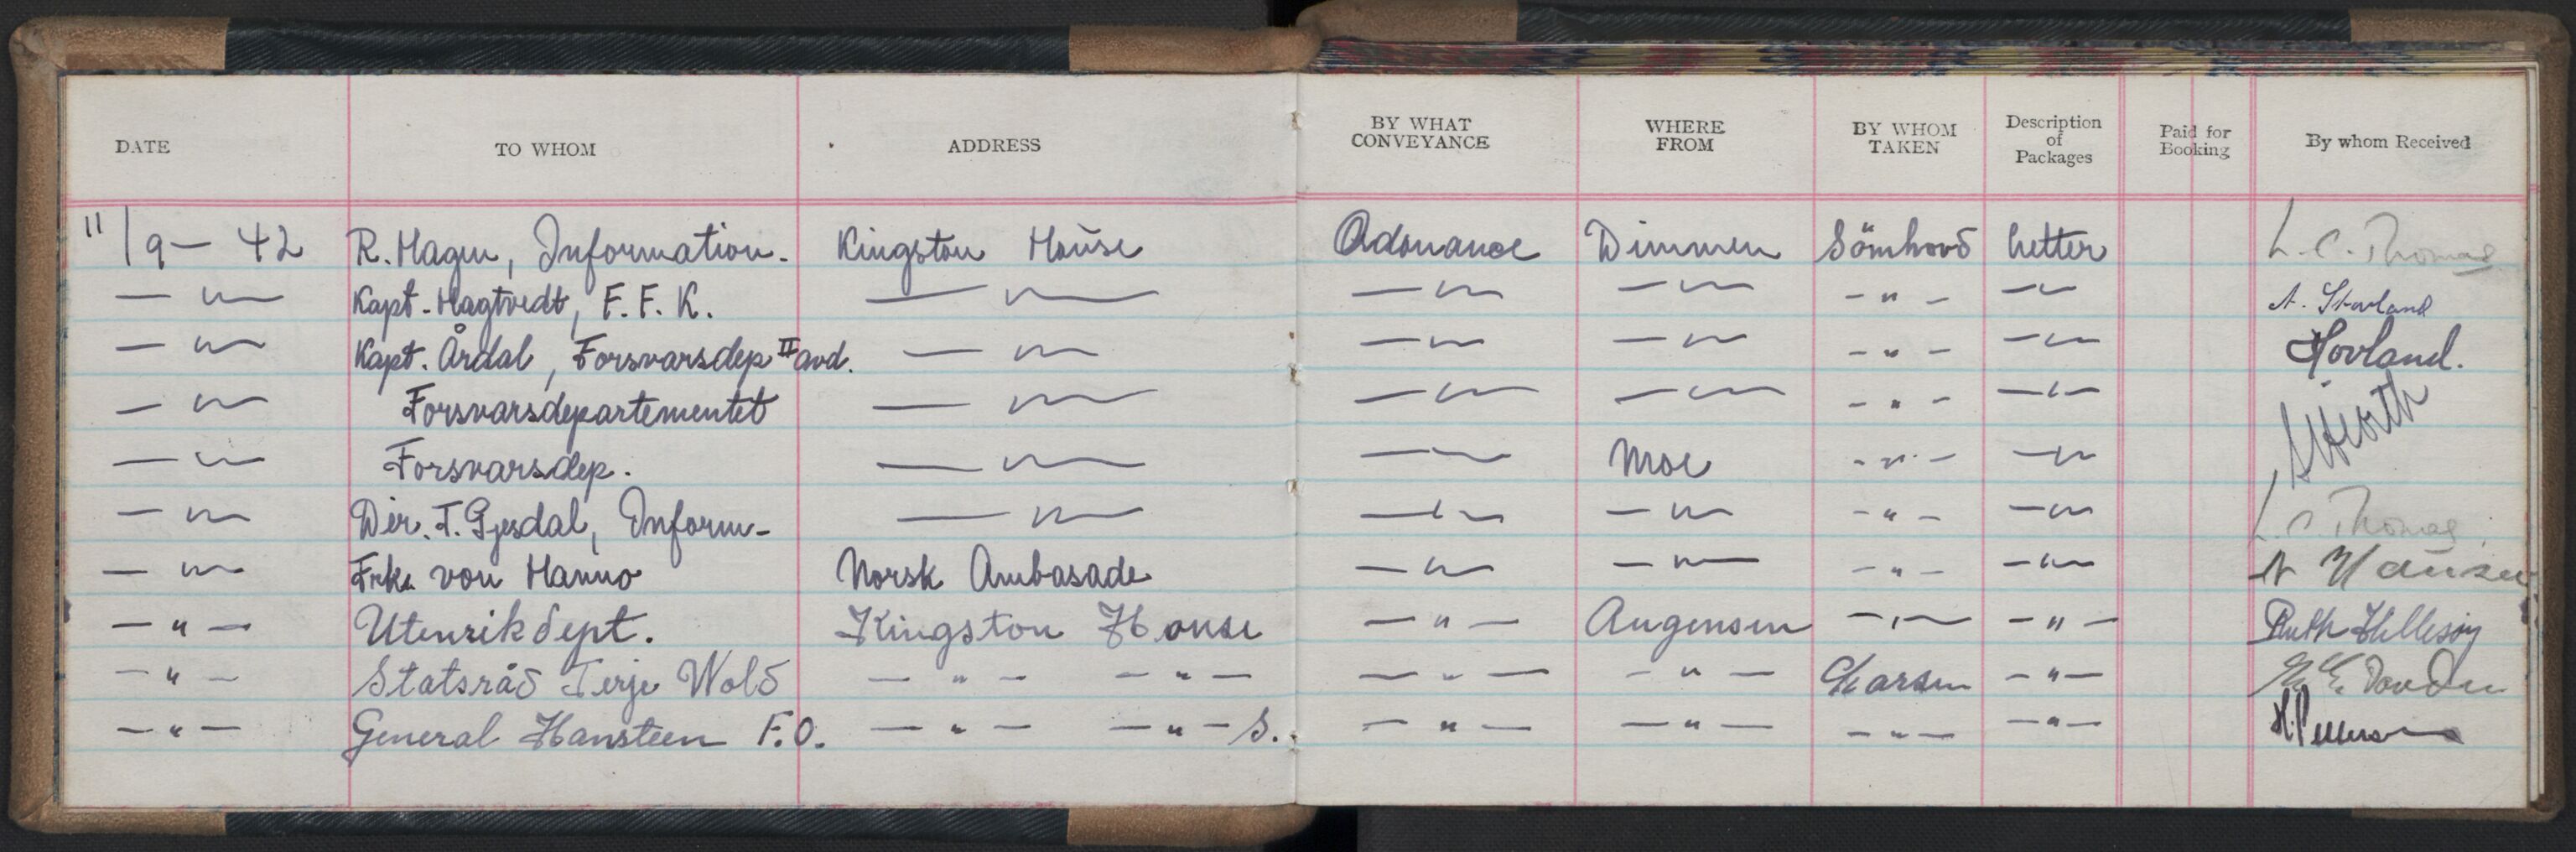 DATE TO WHOM ADDRESS BY WHAT CONVEYANCE WHERE FROM BY WHOM TAKEN Description of Packages Paid for Booking By whom Received
11/9 — 42 R. Hagen, Information. Kingston House Dimmen Sömhovd Letter L. C. Thomas
— " — Kapt. Hagtvedt, F. F. K. — " — — " — — " — — " — — " —
— " — Kapt. Årdal, Forsvarsdep II avd. — " — — " — — " — — " — — " — Hovland.
— " — Forsvarsdepartementet — " — — " — — " — — " — — " —
— " — Forsvarsdep. — " — — " — Moe — " — — " —
— " — Dir. T. Gjesdal, Inform- — " — — " — — " — — " — — " — L. C. Thomas
— " — Frk. von Hanno Norsk Ambasade — " — — " — — " — — " — Hansen
— " — Utenriksdept. Kingston House — " — Augensen — " — — " — Ruth Hellesøy
— " — Statsråd Terje Wold — " — — " — — " — — " — Larsen — " —
— " — General Hansteen F.O. — " — — " — S. — " — — " — — " — — " —